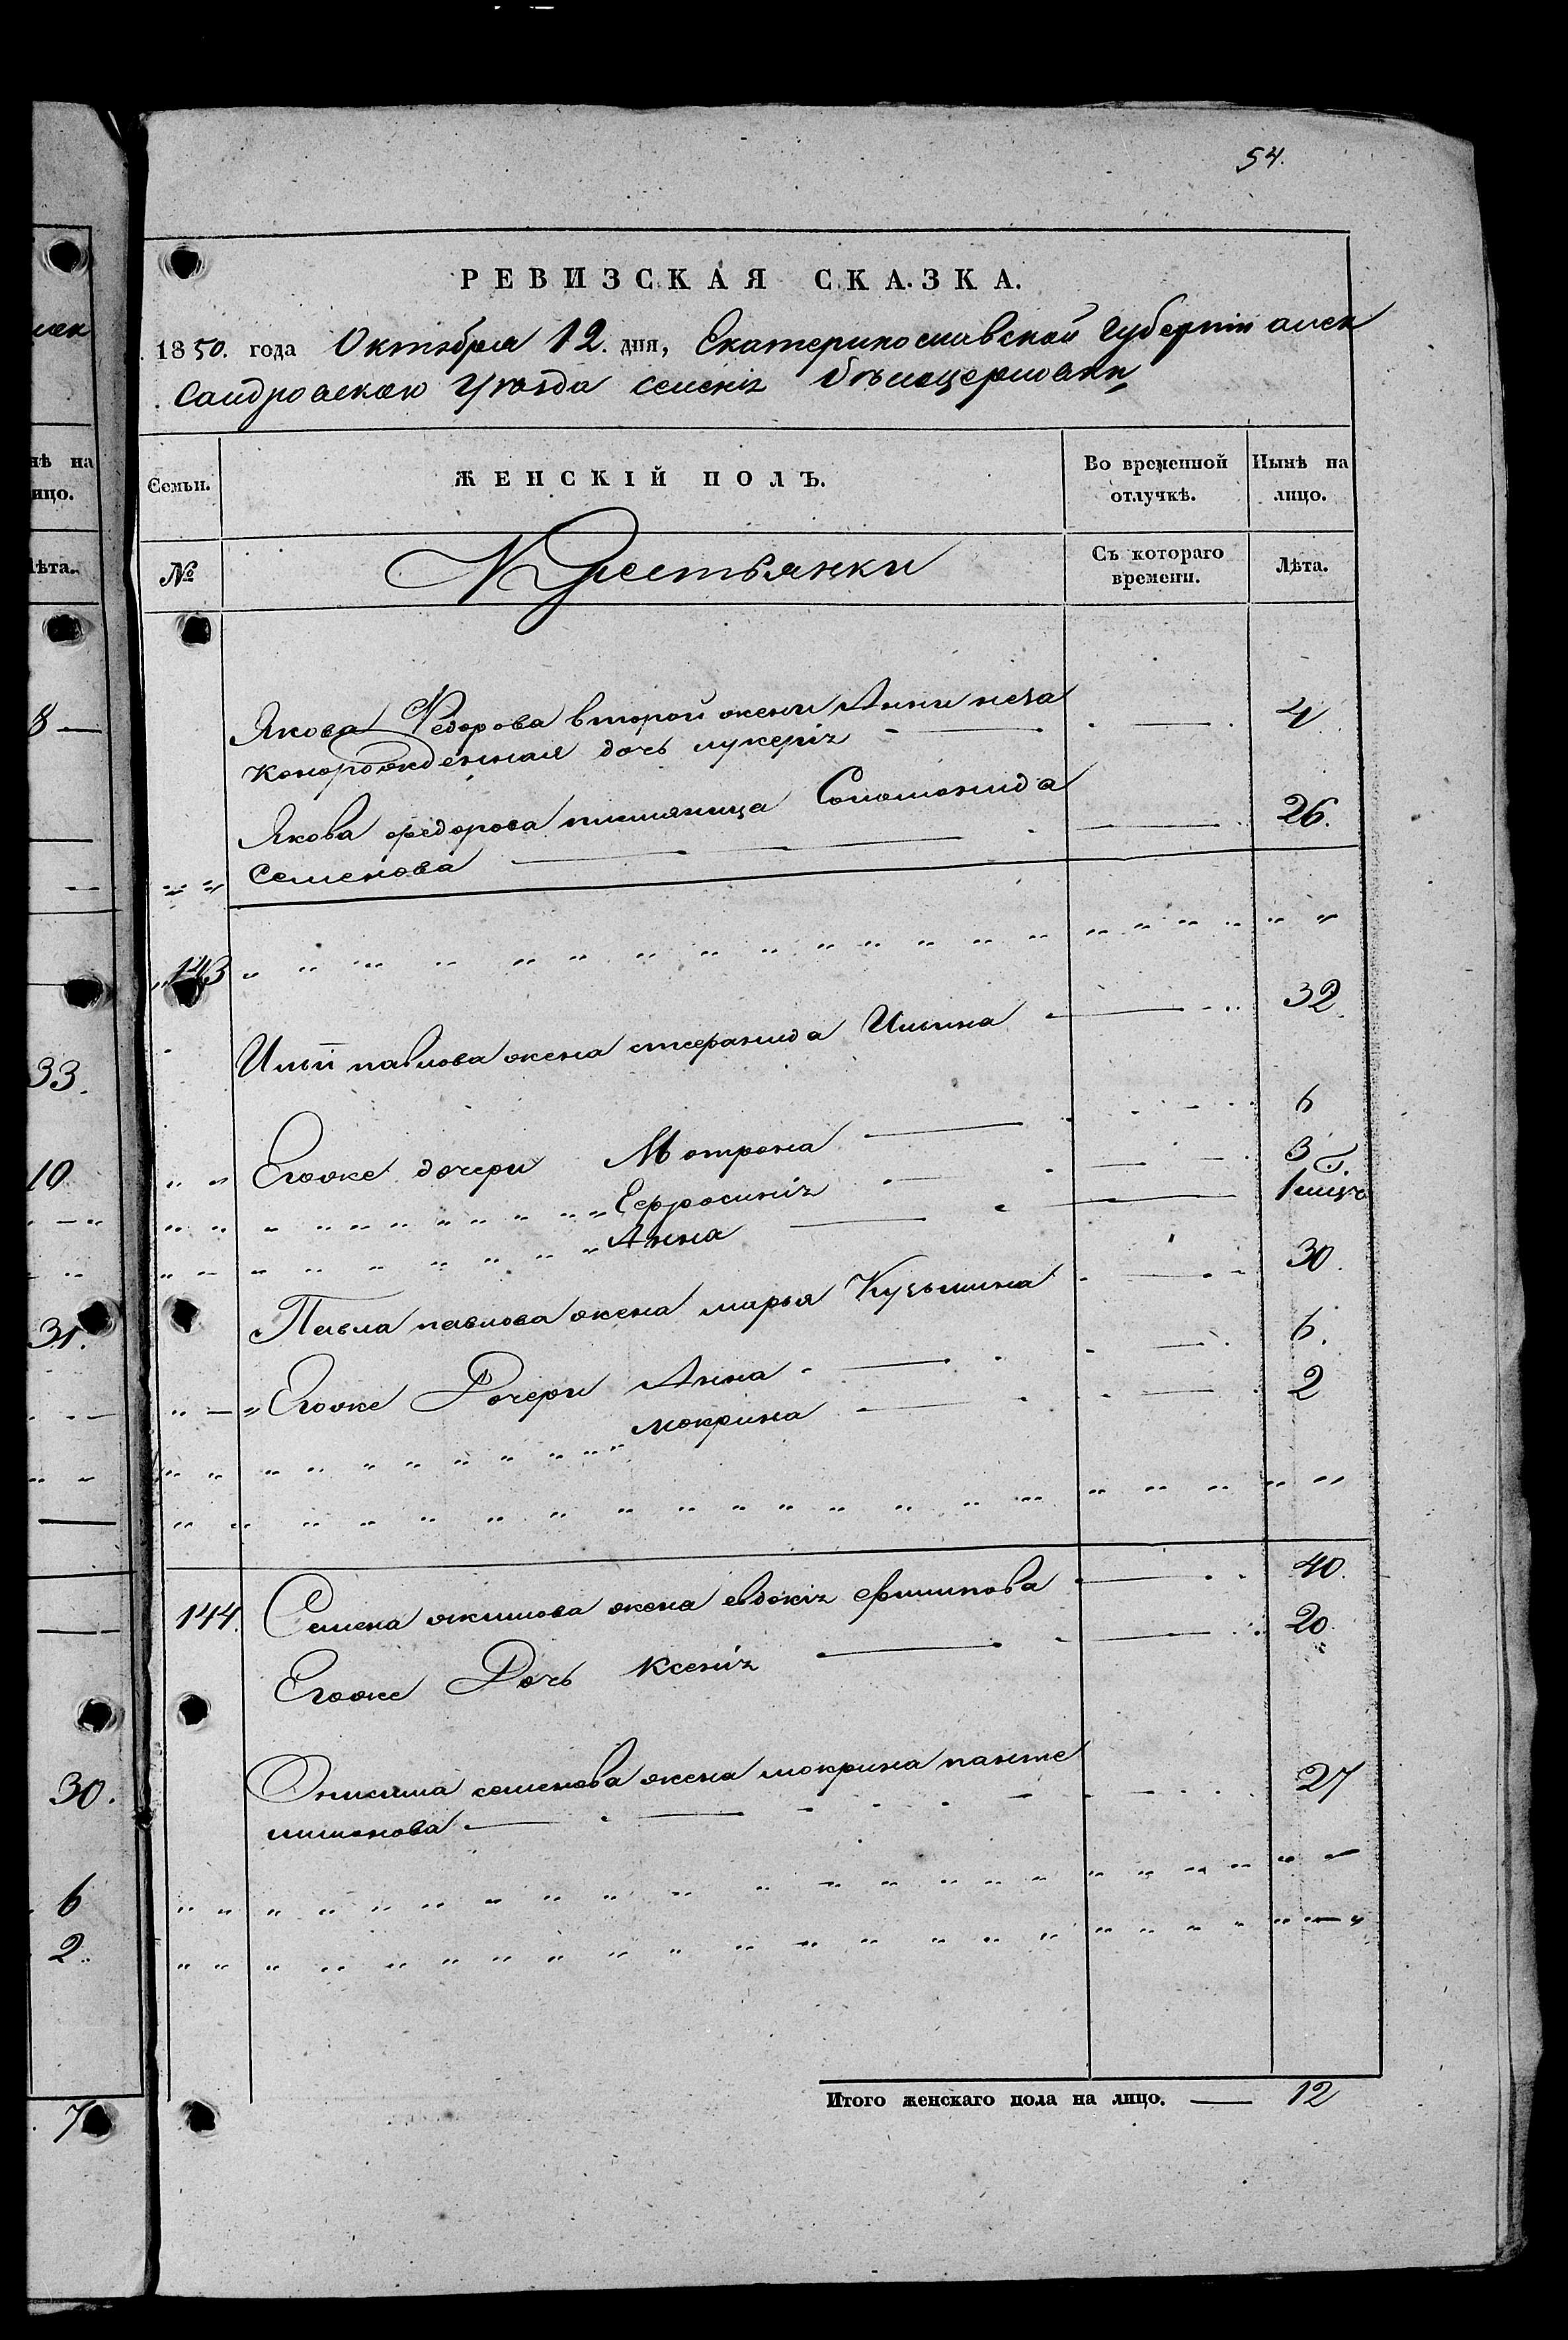 54.
РЕВИЗСКАЯ СКАЗКА.
1850. года Октября 12. дня, Екатеринославской Губернии алек
сандровскаго уѣзда селения Бѣлоцерковки
Семьи.
ЖЕНСКІЙ ПОЛЪ.
Во временной отлучкѣ.
Нынѣ на лицо.
№
Крестьянки
Съ котораго времени.
Лѣта.
Якова Федорова второй жени Анни неза
конорожденная дочь лукерія 4
Якова федорова племяница Соломонида
Семенова 26.
143
Ильи павлова жена степанида Ильина 32
Егоже дочери Мотрона 6
Ефросинія 3 г.
Анна 1 мисе
Павла павлова жена марья Кузьмина 30.
Егоже Дочери Анна 6.
мокрина 2
144. Семена якимова жена евдокія филипова 40.
Егоже Дочь Ксенія 20.
Онисима семенова жена мокрина панте
лимонова 27
Итого женскаго пола на лицо. — 12
лек
нѣ на
ицо.
лѣта.
8 —
33.
10
31.
30.
6
2.
7